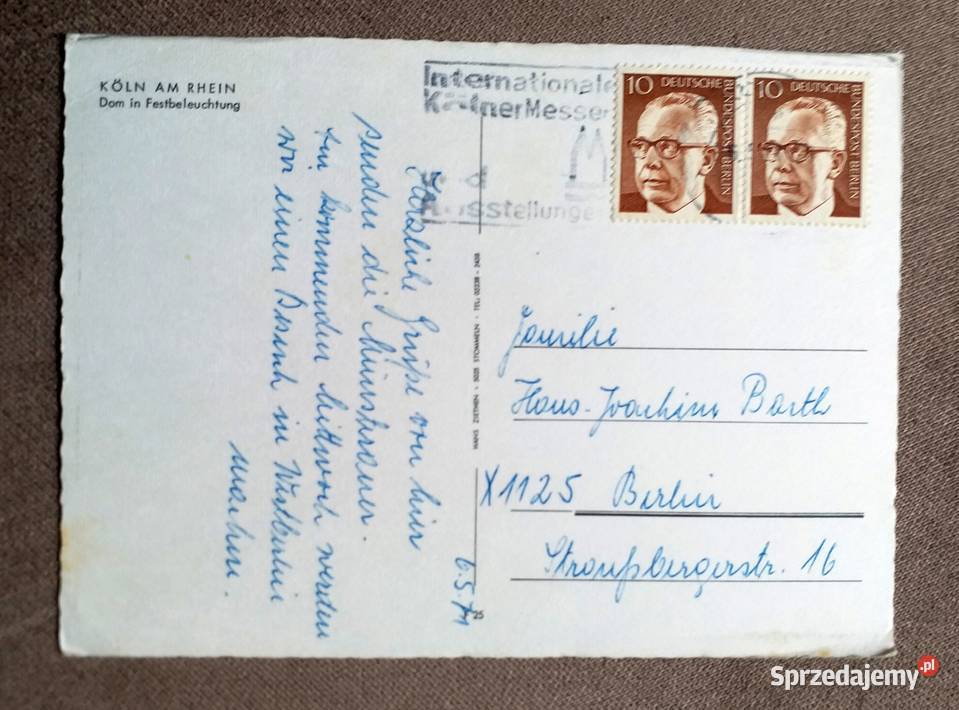 KÖLN AM RHEIN
Dom in Festbeleuchtung
Internationale
KölnerMessen
Ausstellunge
10 DEUTSCHE BUNDESPOST BERLIN
10 DEUTSCHE BUNDESPOST BERLIN
6.5.71
Herzliche Grüße von hier
senden die
Am kommenden Mittwoch werden
wir einen Besuch in Westberlin
machen.
HANS ZIETHEN · 5025 STOMMELN · TEL.
25
Familie
Hans-Joachim Barth
X1125 Berlin
Straußbergerstr. 16
Sprzedajemy.pl